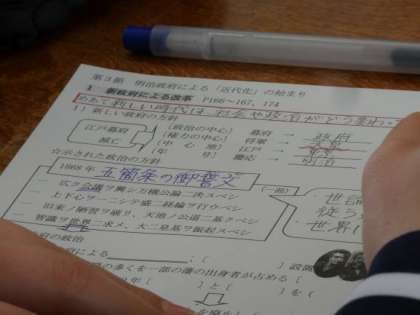 第3節 明治政府による「近代化」の始まり
1 新政府による改革 P166~167, 174
めあて 新しい時代は、社会や政治がどう変わ
1) 新しい政府の方針
江戸幕府 滅亡
(政治の中心) 幕府 → 政府
(権力の中心) 将軍 →
(中心地) 江戸 → 東京
(年号) 慶応 → 明治
示された政治の方針
1868年 五箇条の御誓文 (一部)
広ク会議ヲ興シ万機公論ニ決スベシ
上下心ヲ一ニシテ盛ニ経綸ヲ行ウベシ
旧来ノ陋習ヲ破リ、天地ノ公道ニ基クベシ
智識ヲ世界ニ求メ、大ニ皇基ヲ振起スベシ
世
従う
世界
府の政治
府による
歩くを一部の藩の出身者が占める